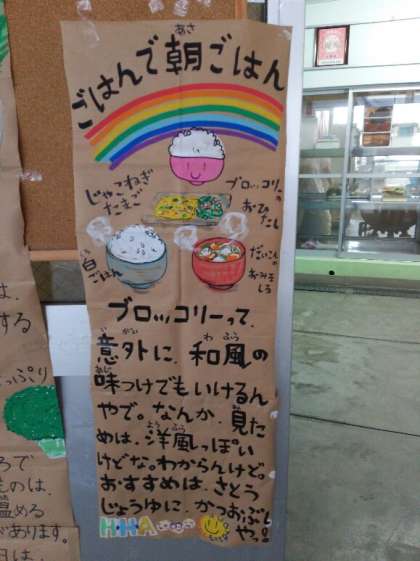 ごはんで朝ごはん
あさ
じゃこねぎ
たまご
ブロッコリーの
おひたし
白ごはん
だいこんの
おみそしる
ブロッコリーって、
意外に、和風の
いがい わふう
味つけでもいけるん
あじ
やで。なんか、見た
み
めは、洋風っぽい
ようふう
けどな。わからんけど。
おすすめは、さとう
じょうゆに、かつおぶし
や。
HHA
する
っぷり
ろで
ものは、
温める
があります。